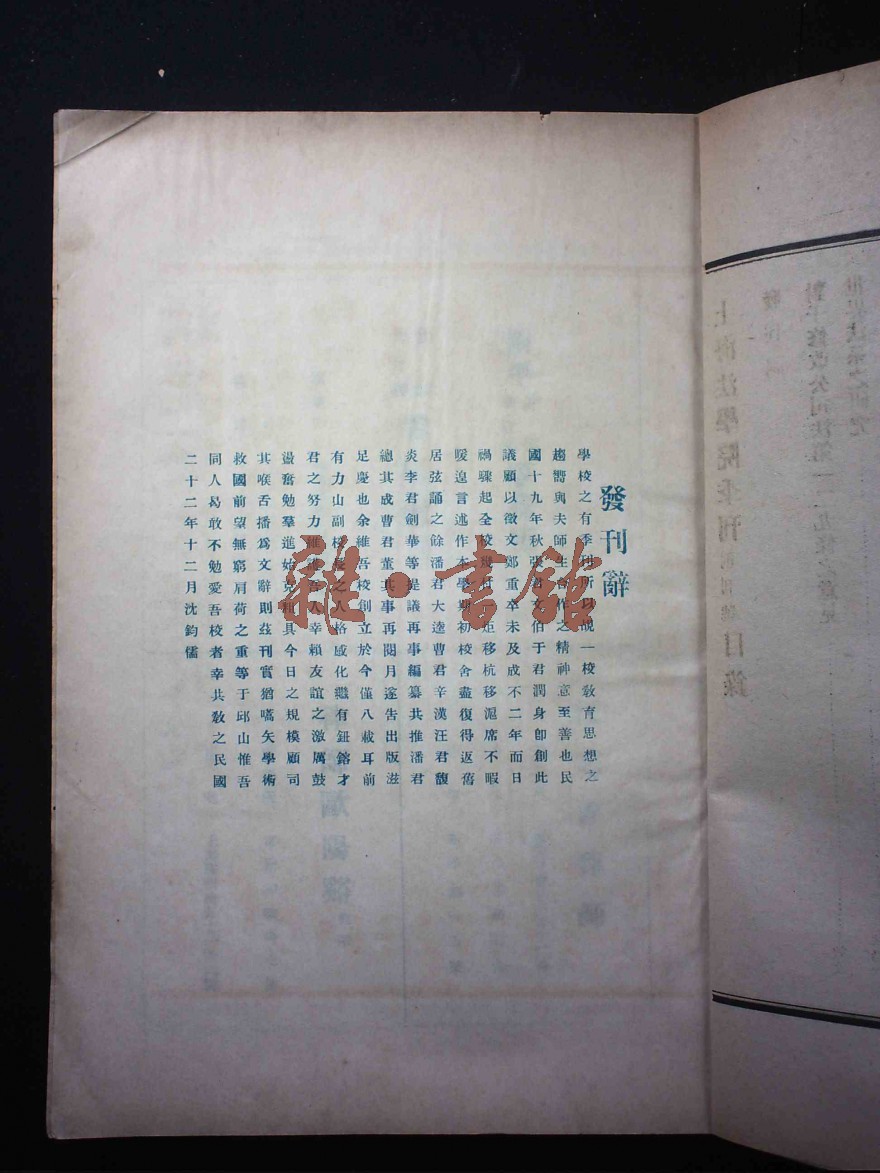 發刊辭
學校之有季刊所以覘一校教育思想之
趨嚮與夫師生合作之精神意至善也民
國十九年秋張君文伯于君潤身卽創此
議顧以徵文鄭重卒未及成不二年而日
禍驟起全校幾付一炬移杭移滬席不暇
煖遑言述作本學期初校舍盡復得返舊
居弦誦之餘潘君大逵曹君辛漢汪君馥
炎李君劍華等提議再事編纂共推潘君
總其成曹君董其事再閱月遂吿出版滋
足慶也余維吾校創立於今僅八載耳前
有力山副校長之人格感化繼有鈕鎔才
君之努力維護吾人幸賴友誼之激厲鼓
盪奮勉羣進始克粗具今日之規模顧司
其喉舌播爲文辭則茲刊實猶嚆矢學術
救國前望無窮肩荷之重等于邱山惟吾
同人曷敢不勉愛吾校者幸共敎之民國
二十二年十二月沈鈞儒
雜·書館
上海法學院季刊
目錄